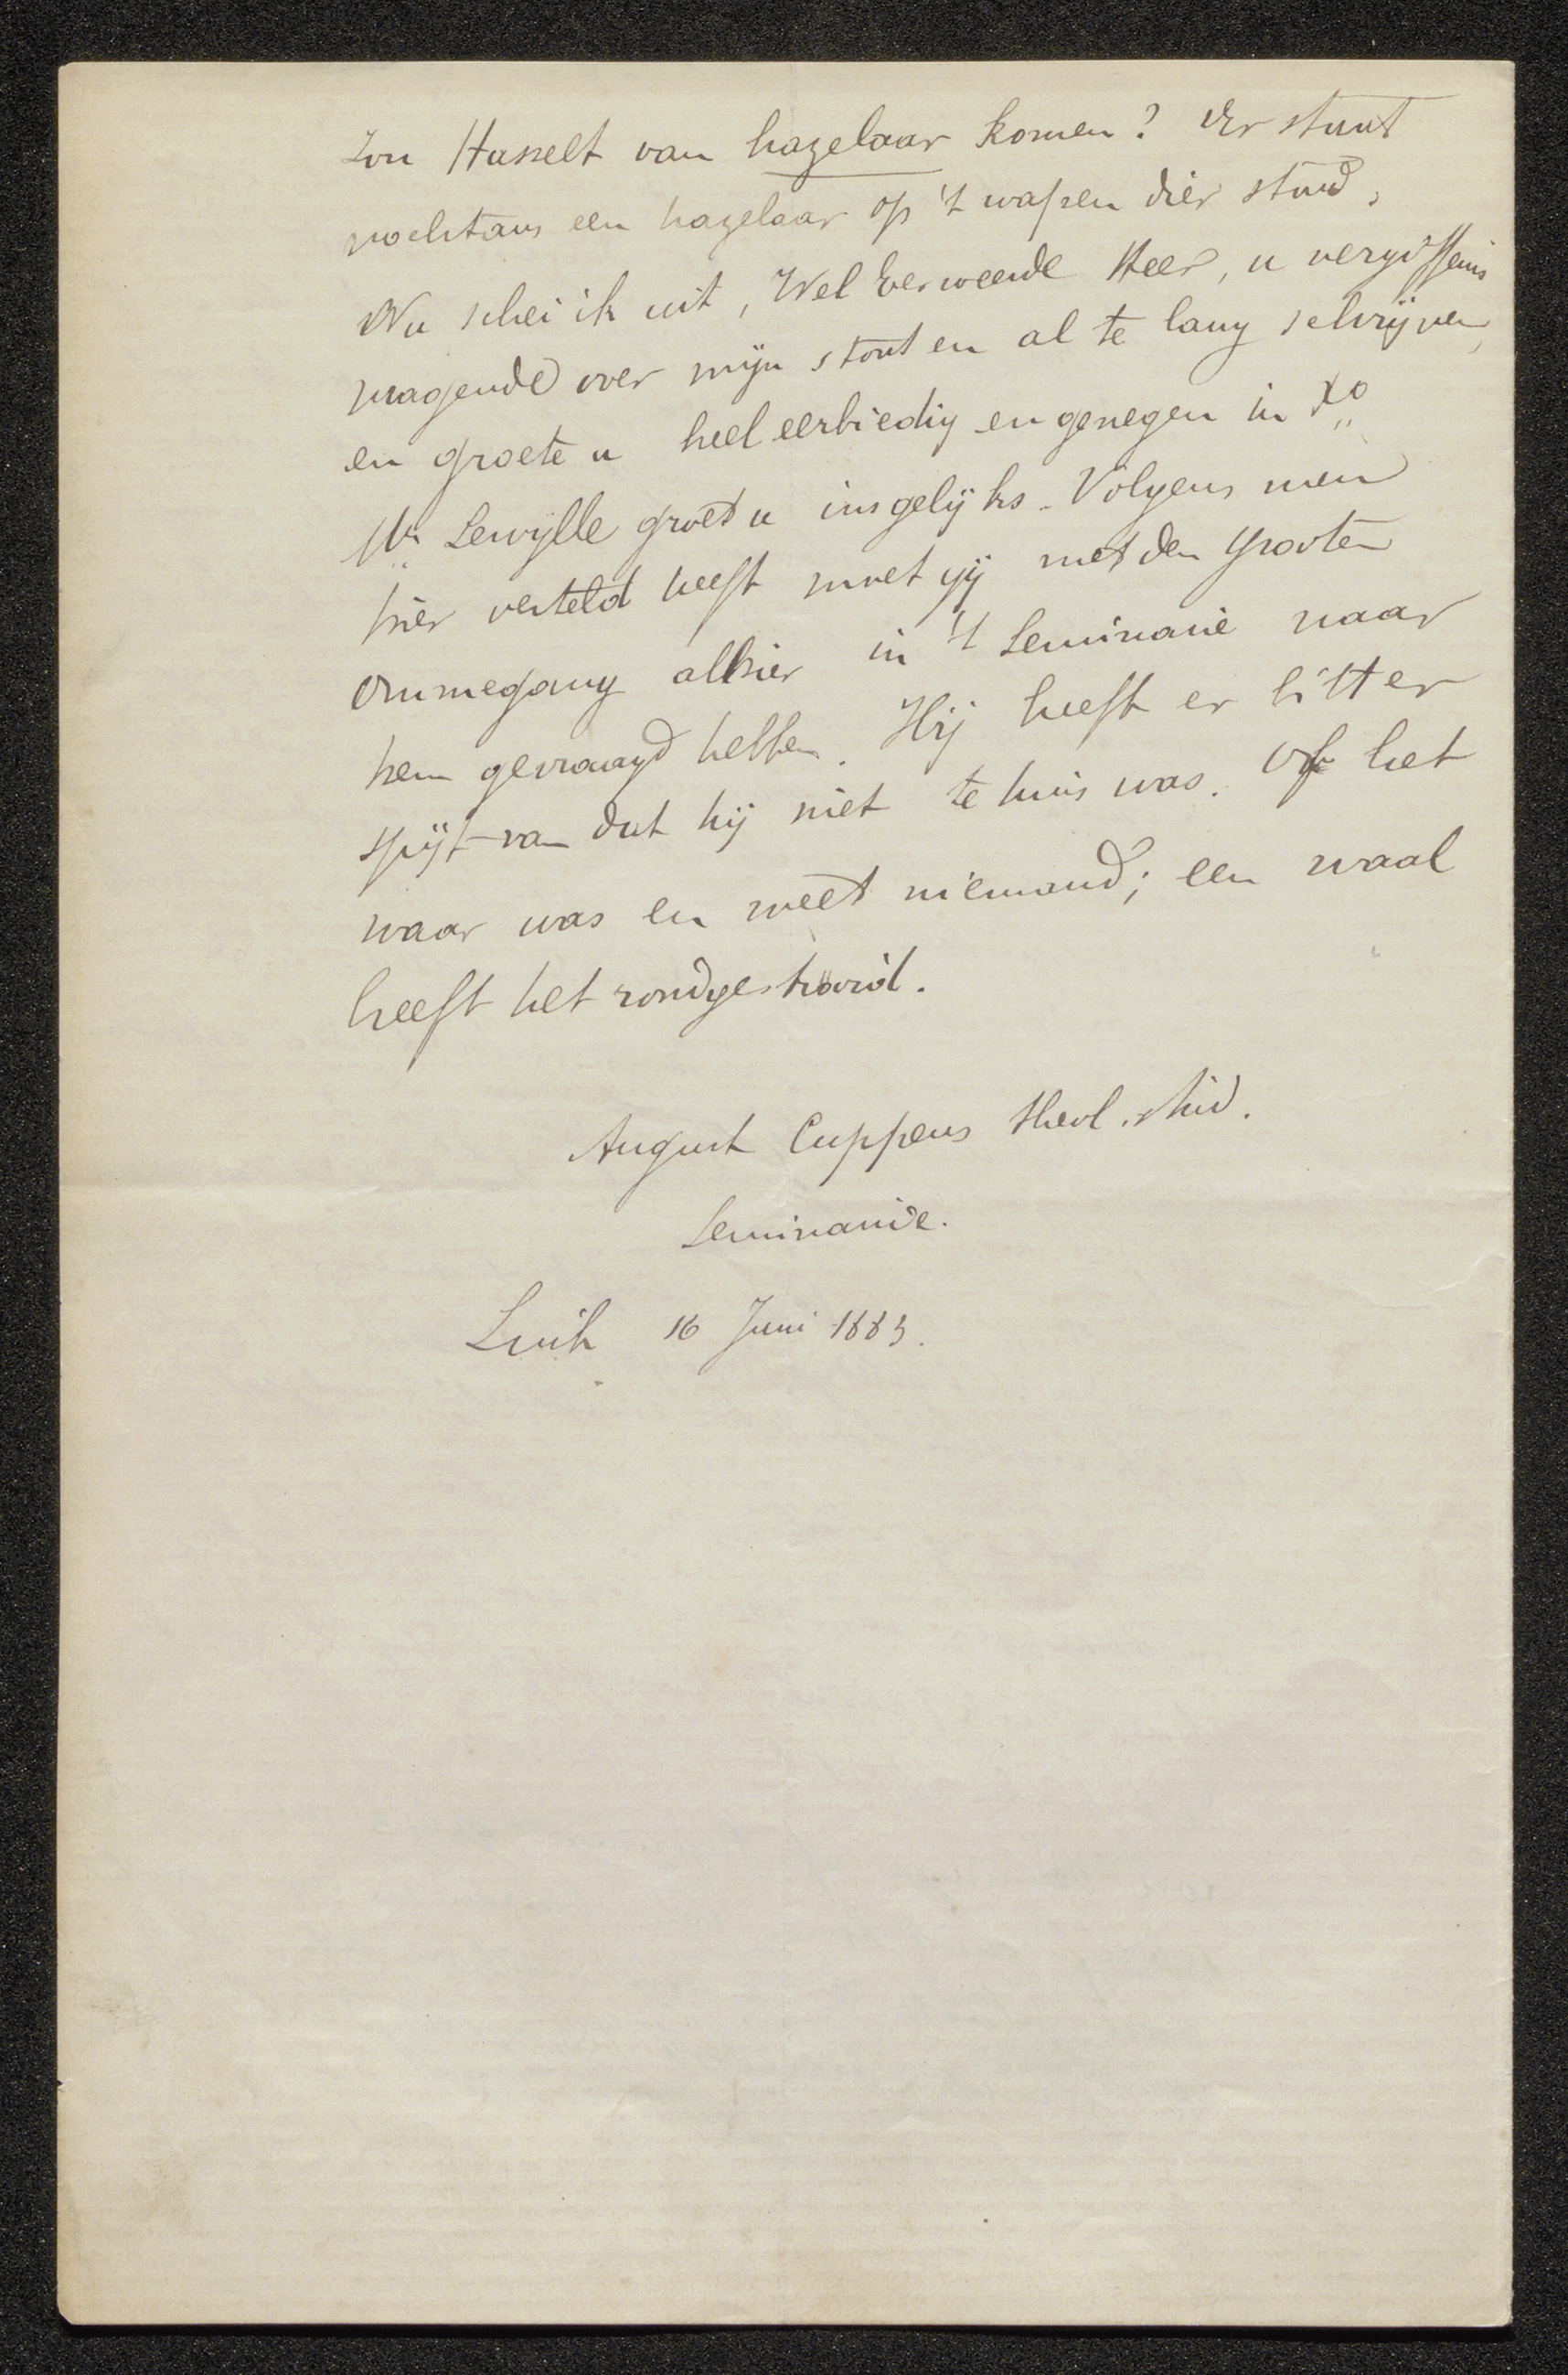 Zou Hasselt van hazelaar komen? Er staat
nochtans een hazelaar op 't wapen dier stad,
Nu schei ik uit, Wel Eerweerde Heer, u vergiffenis
vragende over mijn stout en al te lang schrijven,
en groete u heel eerbiedig en genegen in Xo
Mr Lewylle groet u insgelijks. Volgens men
hier verteld heeft moet gij met den grooten
Ommegang alhier in 't Seminarie naar
hem gevraagd hebben. Hij heeft er bitter
spijt van dat hij niet te huis was. Of het
waar was en weet niemand; een waal
heeft het rondgestrooid.
August Cuppens theol. stud.
Seminarie.
Luik 16 Juni 1883.